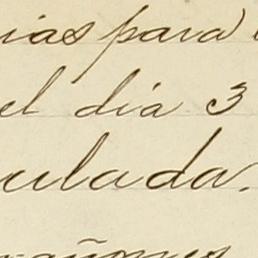 ias para
el dia 3
ulada.